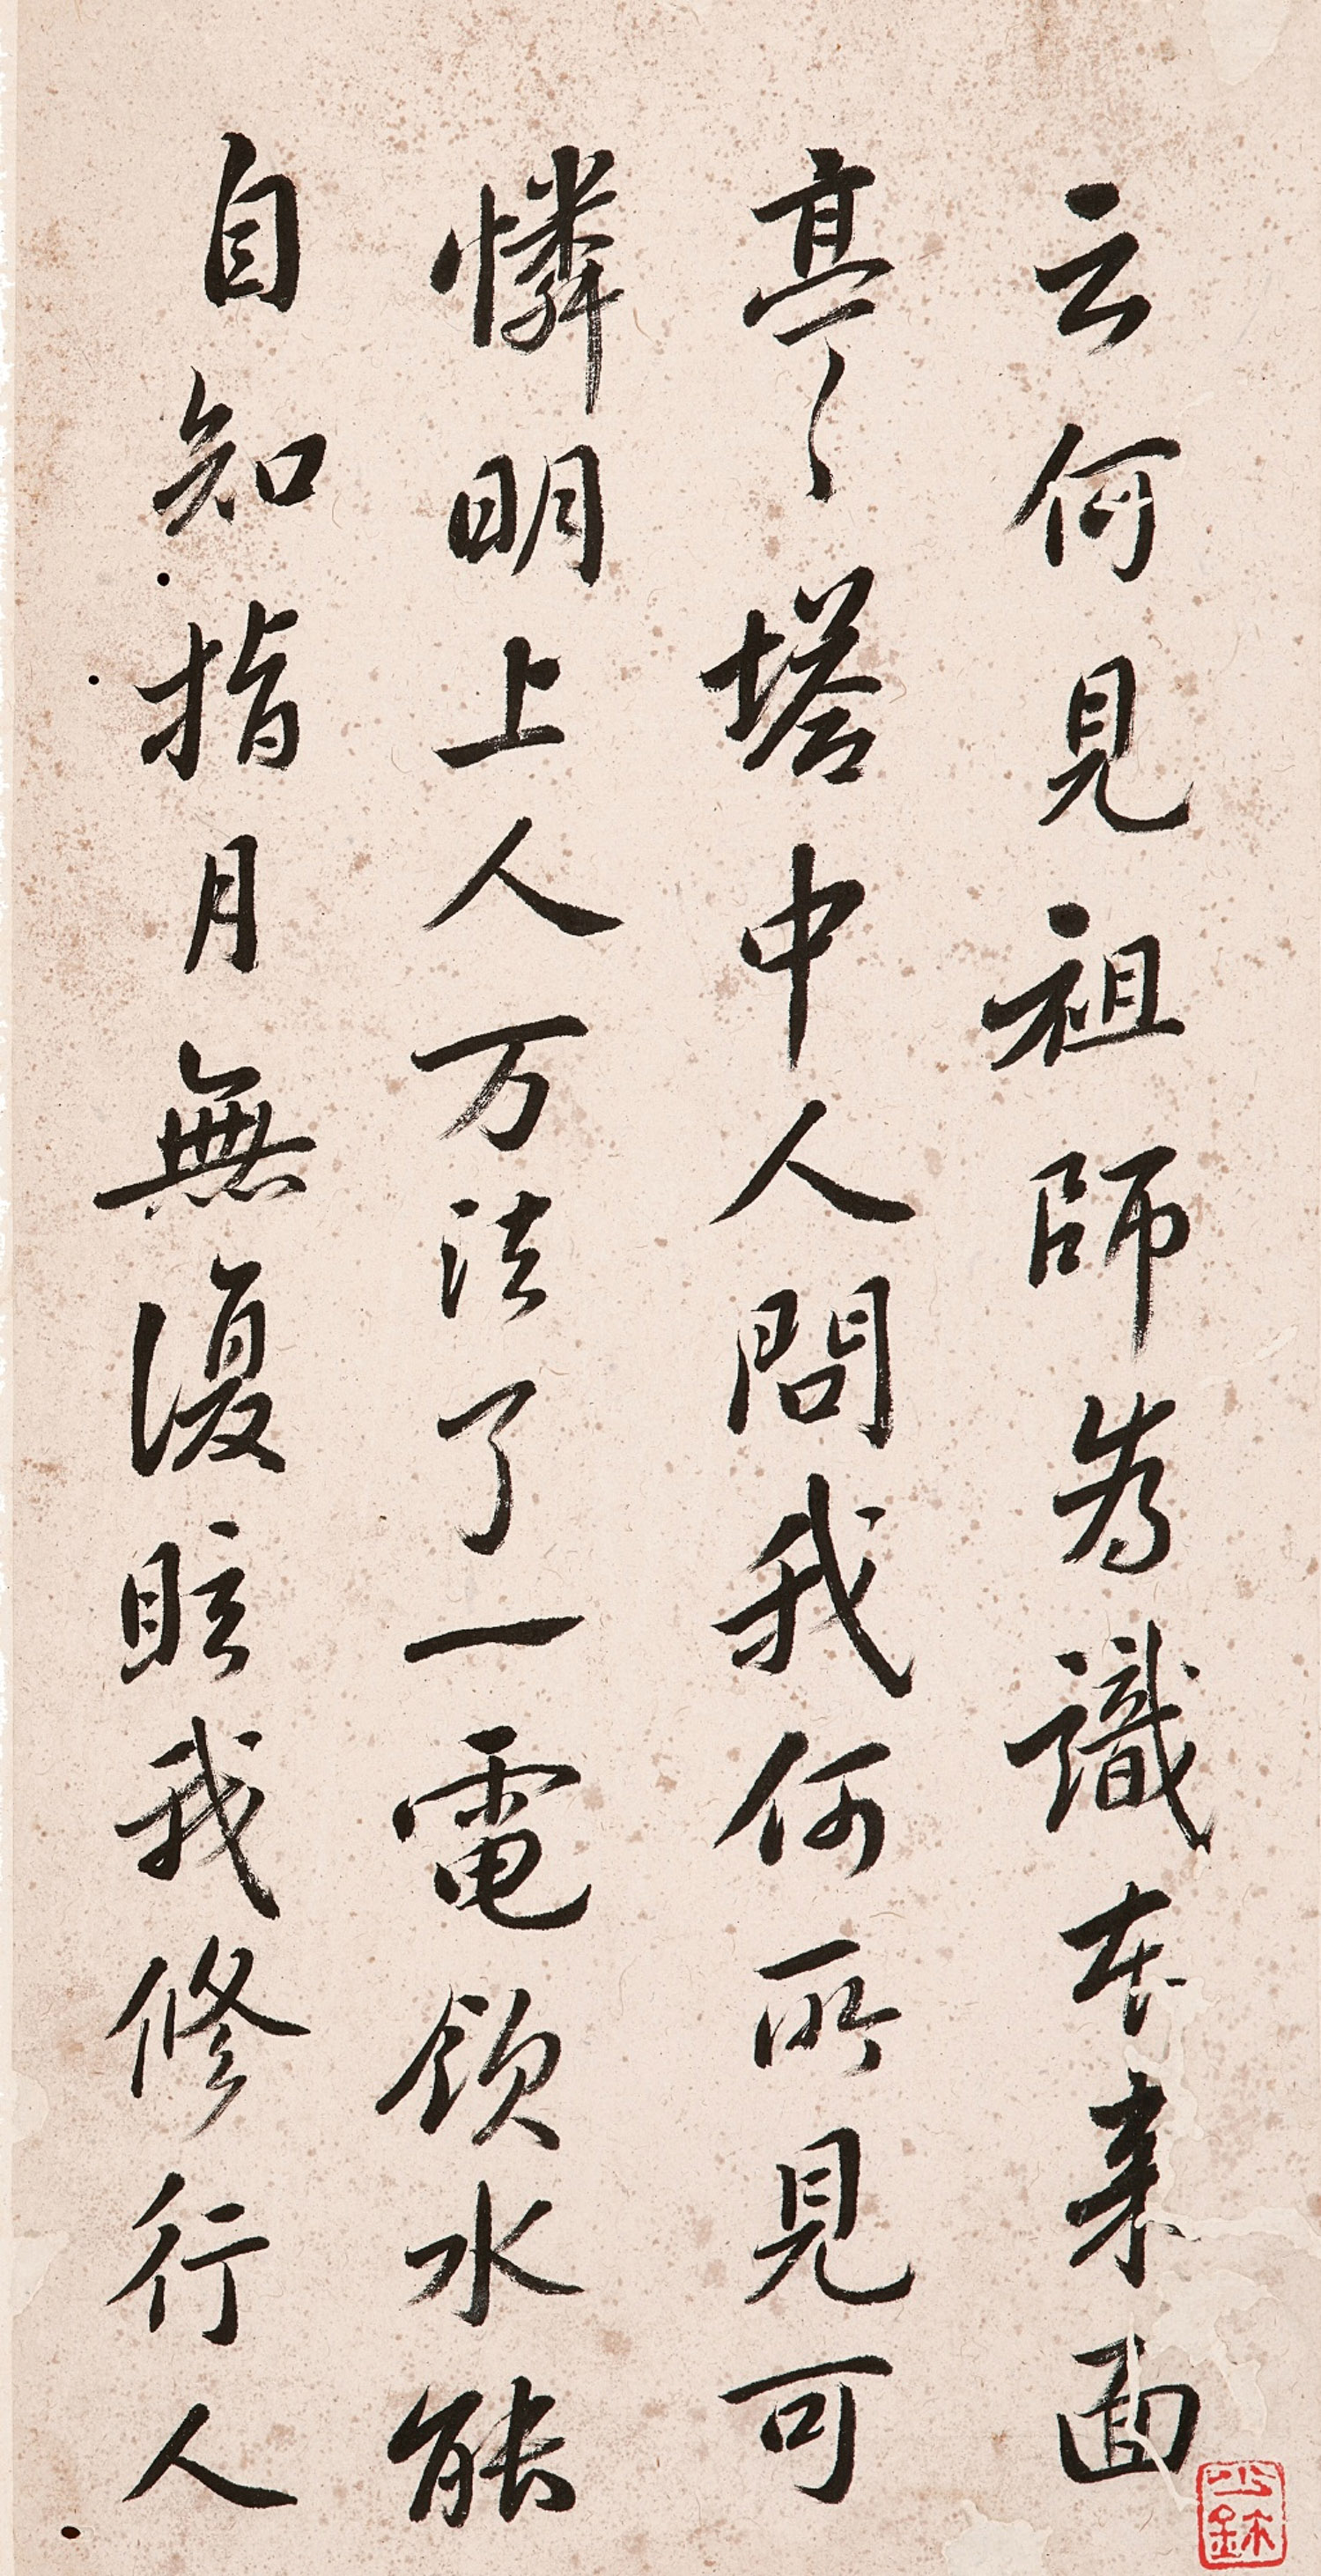 云何見祖師為識本來面
亭〻塔中人問我何所見可
憐明上人万法了一電飲水能
自知指月無復眩我修行人